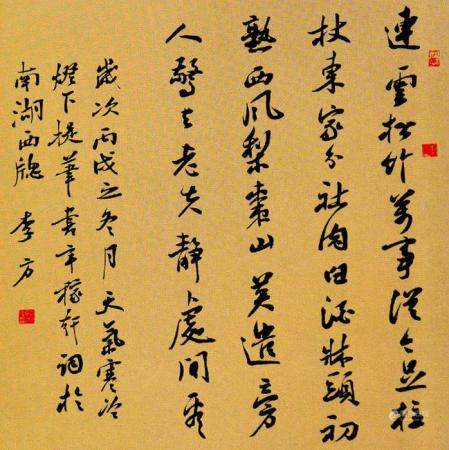 連雲松竹萬事從今足拄
杖東家分社肉白酒牀頭初
熟西风梨棗山莫遣旁
人驚去老夫靜處间看
歲次丙戌之冬月天氣寒冷
燈下提筆書辛稼軒詞於
南湖西牕 李方